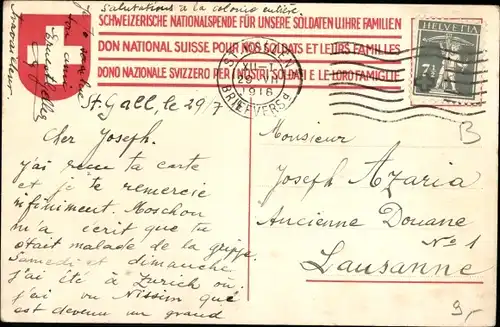 Salutations à la colonie entière.
SCHWEIZERISCHE NATIONALSPENDE FÜR UNSERE SOLDATEN U. IHRE FAMILIEN
DON NATIONAL SUISSE POUR NOS SOLDATS ET LEURS FAMILLES
DONO NAZIONALE SVIZZERO PER I NOSTRI SOLDATI E LE LORO FAMIGLIE
HELVETIA
7½
XII-1
29 VII
1916
BRIEFVERSD
ton ami
St. Gall, le 29/7
Cher Joseph.
j'ai reçu ta carte
et je te remercie
infiniment. Moschon
m'a écrit que tu
était malade de la grippe
Samedi et dimanche
j'ai été à Zurich ou
j'ai vu Nissim qui
est devenu un grand
Monsieur
Joseph Azaria
Ancienne Douane
No 1
Lausanne
B
9,-